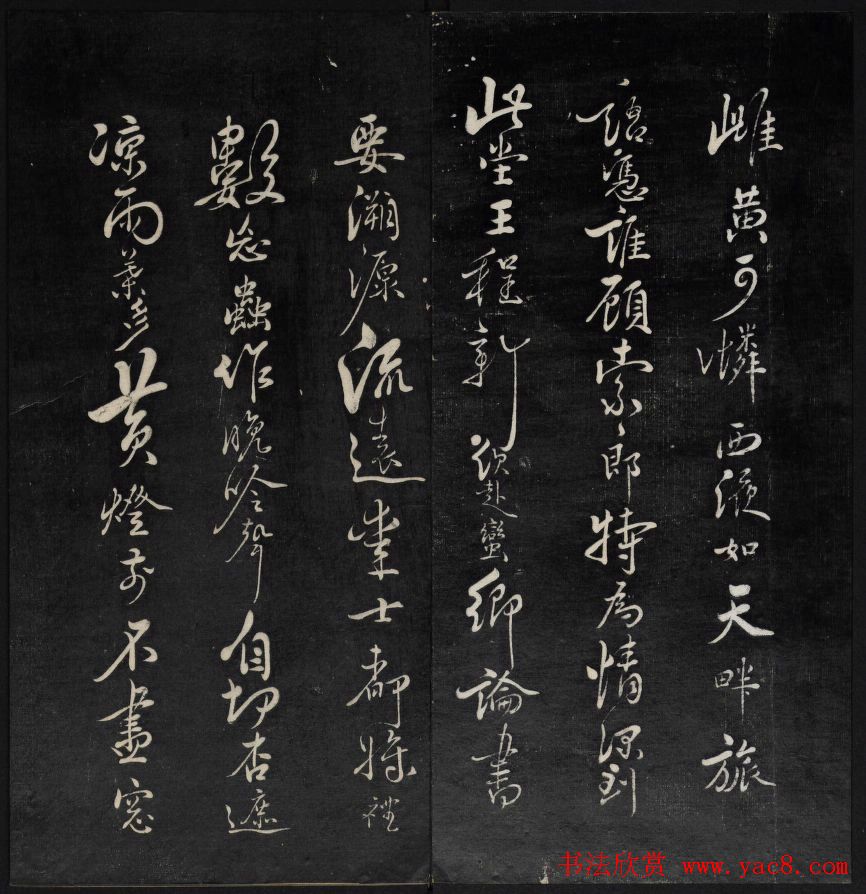 雌黄可憐西如天畔旅
語憑誰顧索郎特為情深到
此堂王程新赴蠻鄉論書
要溯源流遠業士都將禪
數蟲作晚吟聲自切杏遮
凉雨葉多黄燈前不盡窓
书法欣赏 www.yac8.com